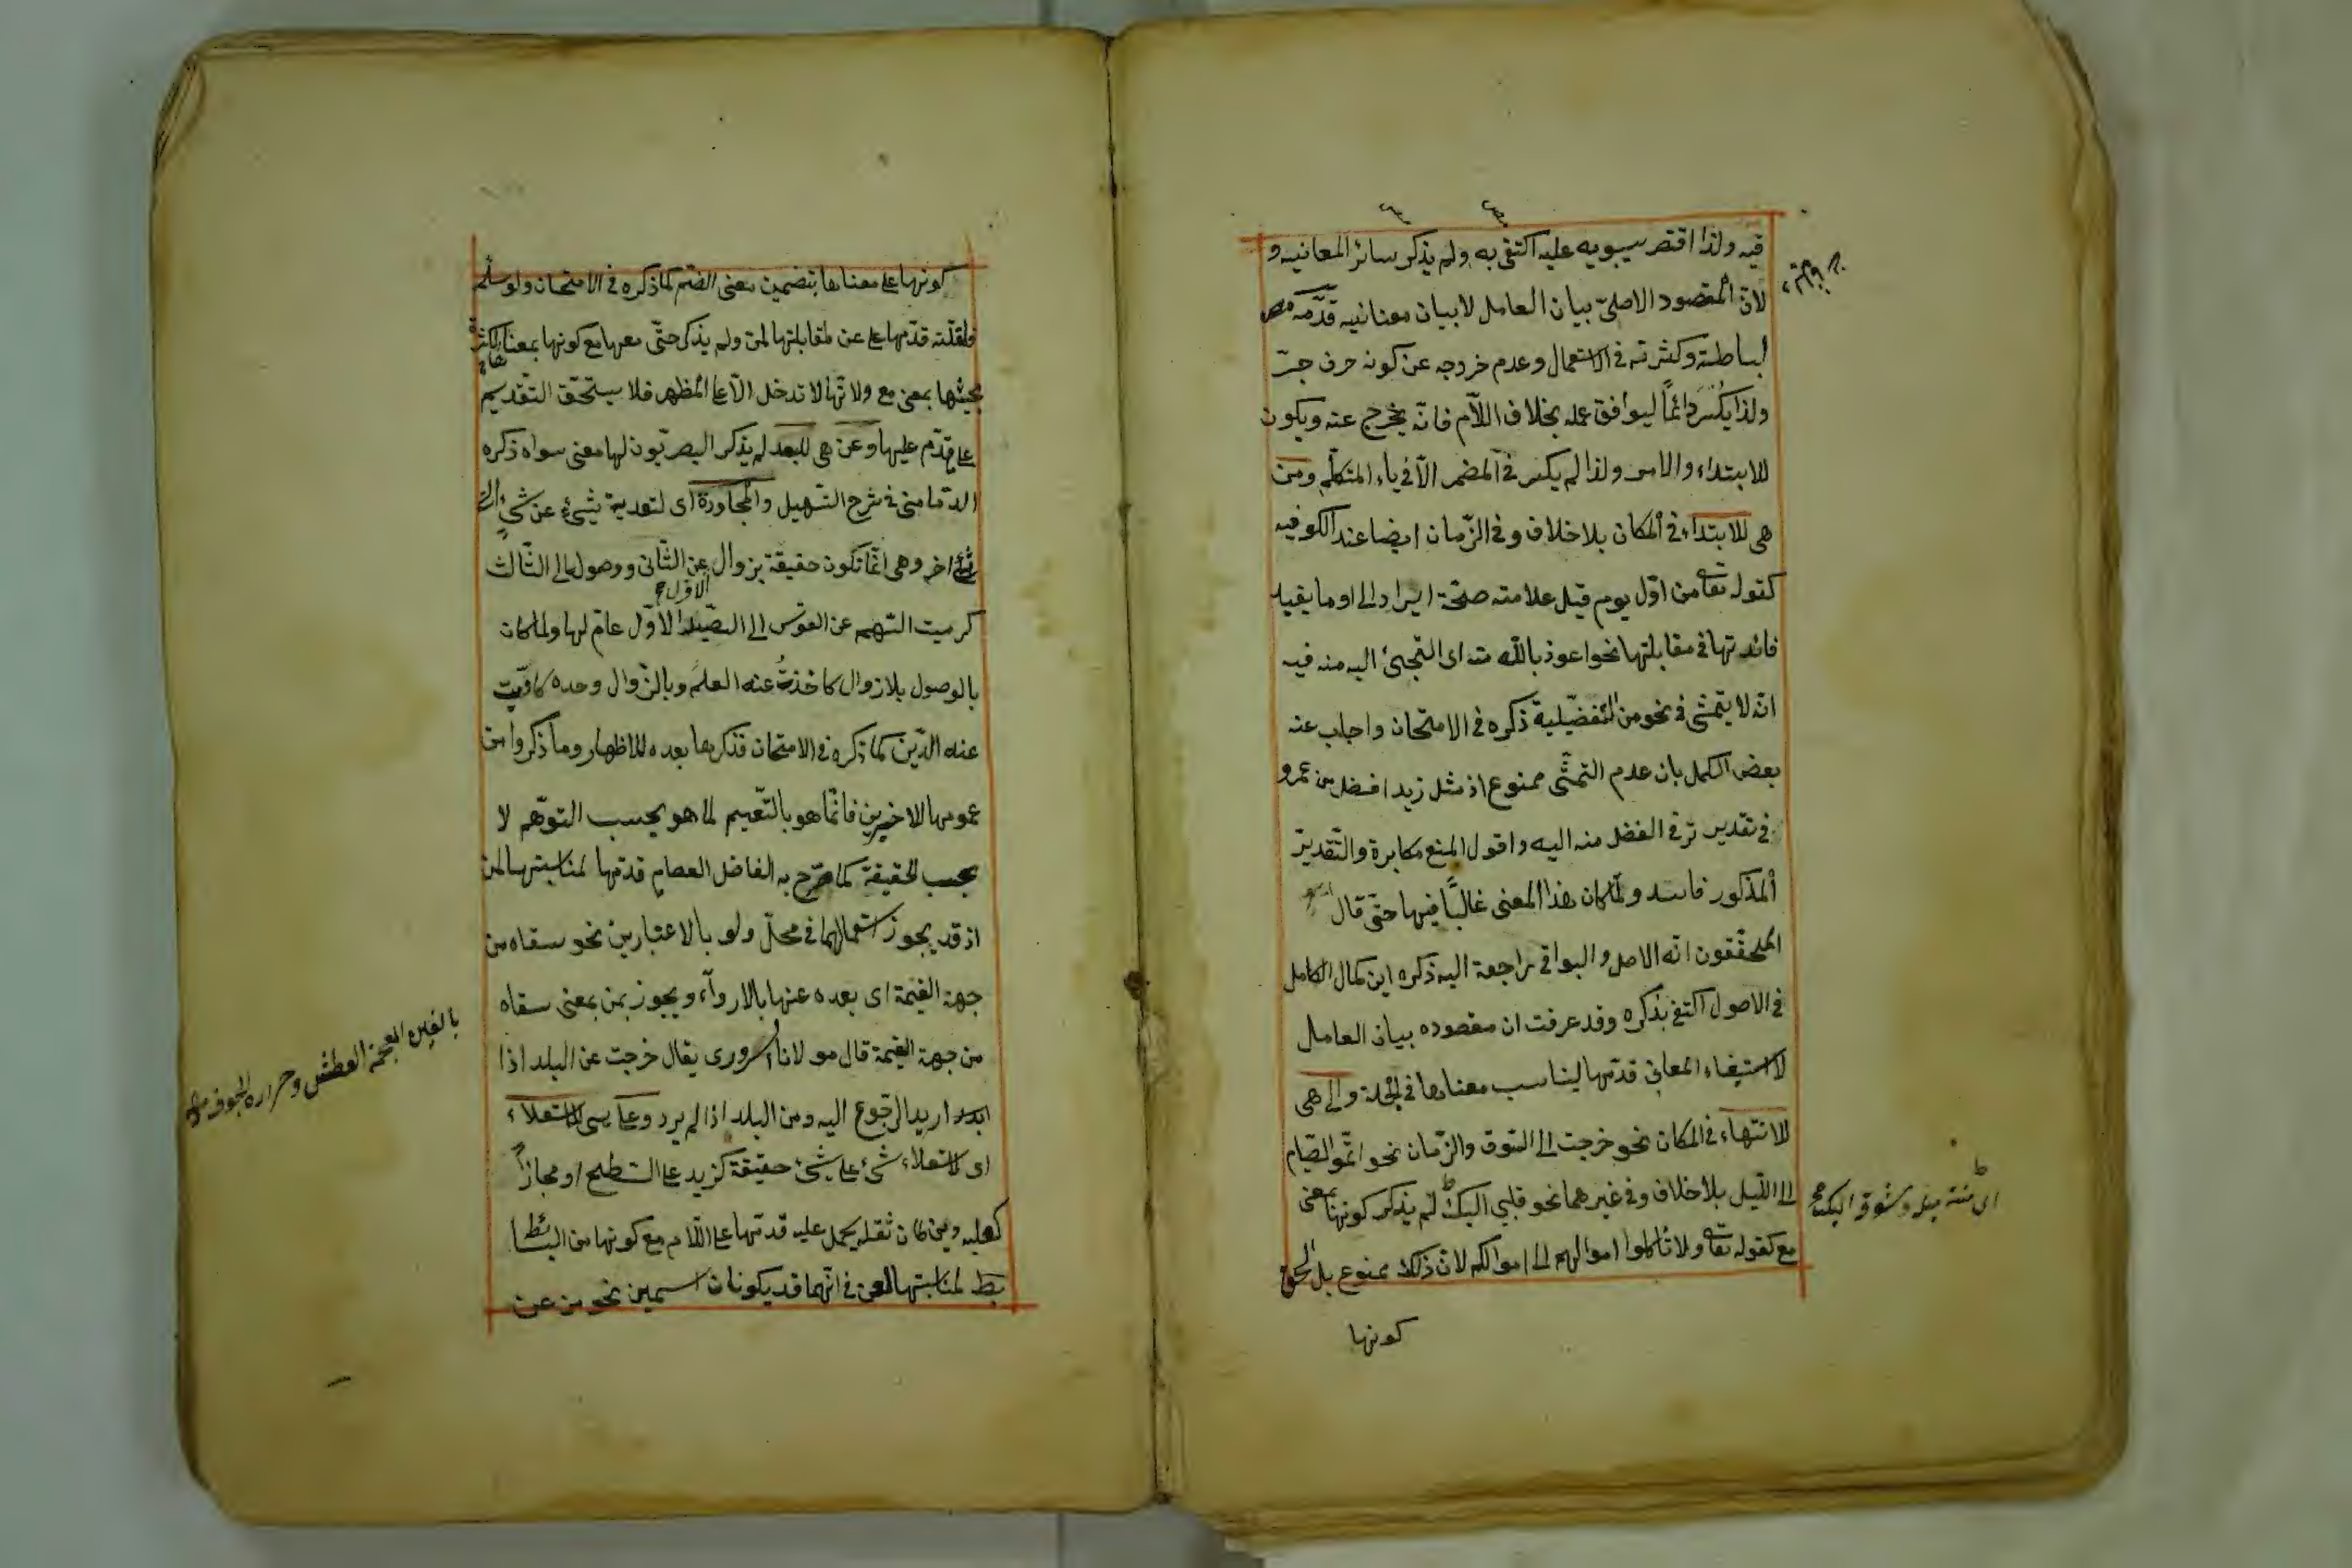 فيه ولذا اقتصر سيبويه عليه اكتفى به ولم يذكر سائر المعانيه و
لانّ المقصود الاصلىّ بيان العامل لا بيان معنانيه قدّمه
لبساطته وكثرته فى الاستعمال وعدم خروجه عن كونه حرف جرّ
ولذا يكسر دائماً ليوافق عمله بخلاف اللاّم فانّه يخرج عنه ويكون
للابتداء والامر ولذا لم يكسر فى المضمر الاّ فى ياء المتكلّم ومن
هى للابتداء فى المكان بلا خلاف وفى الزّمان ايضا عند الكوفيه
كقوله تعا من اوّل يوم قيل علامته صحّة ايراد الى او ما يفيد
فائدتها فى مقابلتها نحو اعوذ بالله منه اى التجئ اليه منه فيه
انّه لا يتمشى فى نحو من التفضيلية ذكره فى الامتحان واجاب عنه
بعض الكمل بان عدم التمشّى ممنوع اذ مثل زيد افضل من عمرو
فى تقدير ترقى الفضل منه اليه واقول المنع مكابرة والتّقدير
المذكور فاسد ولمّا كان هذا المعنى غالباً فيها حتّى قال
المحقّقون انّه الاصل والبواقى راجعة اليه ذكره ابن كمال الكامل
فى الاصول اكتفى بذكره وقد عرفت ان مقصوده بيان العامل
لا استيفاء المعانى قدّمها ليناسب معناها فى الجملة والى هى
للانتهاء فى المكان نحو خرجت الى السّوق والزّمان نحو اتمّوا الصّيام
الى اللّيل بلا خلاف وفى غيرهما نحو قلبى اليك لم يذكر كونها بمعنى
مع كقوله تعا ولا تأكلوا اموالهم الى اموالكم لانّ ذلك ممنوع بل الحق
كونها
اى منته ميله وشوقه اليك
كونها على معناها بتضمين معنى الضّم كما ذكره فى الامتحان ولو سلّم
فلقلّته قدّمها على عن لمقابلتها لمن ولم يذكر حتّى معها مع كونها بمعناها لكثرة
مجيئها بمعنى مع ولانّها لا تدخل الاّ على المظهر فلا يستحقّ التّقديم
على قدّم عليها وعن هى للبعد لم يذكر البصريّون لها معنى سواه ذكره
الدّمامنى فى شرح التّسهيل والمجاورة اى لتعدية شئ عن شئ الى
شئ اخر وهى انّما تكون حقيقة بزوال عن الثّانى ووصول الى الثّالث
الاوّل
كرميت السّهم عن القوس الى الصّيد الاوّل عامّ لها ولما كان
بالوصول بلا زوال كاخذت عنه العلم وبالزّوال وحده كادّيت
عنه الدّين كما ذكره فى الامتحان فذكرها بعده للاظهار وما ذكروا من
عمومها للاخيرين فانّما هو بالتّعميم لما هو بحسب التوهّم لا
بحسب الحقيقة كما صرّح به الفاضل العصام قدّمها لمناسبتها لمن
اذ قد يجوز استعمالهما فى محلّ ولو بالاعتبارين نحو سقاه من
جهة الغيمة اى بعده عنها بالارواء ويجوز بمن بمعنى سقاه
من جهة الغيمة قال مولانا السرورى يقال خرجت عن البلد اذا
اريد الرّجوع اليه ومن البلد اذا لم يرد وعلى للاستعلاء
اى لاستعلاء شئ على شئ حقيقة كزيد على السّطح او مجازاً
كعليه دين كان ثقله يحمل عليه قدّمها على اللاّم مع كونها من البسائط
لمناسبتها لعن فى انّهما قد يكونان اسمين نحو من عن
بالغين المعجمة العطش وحرارة الجوف